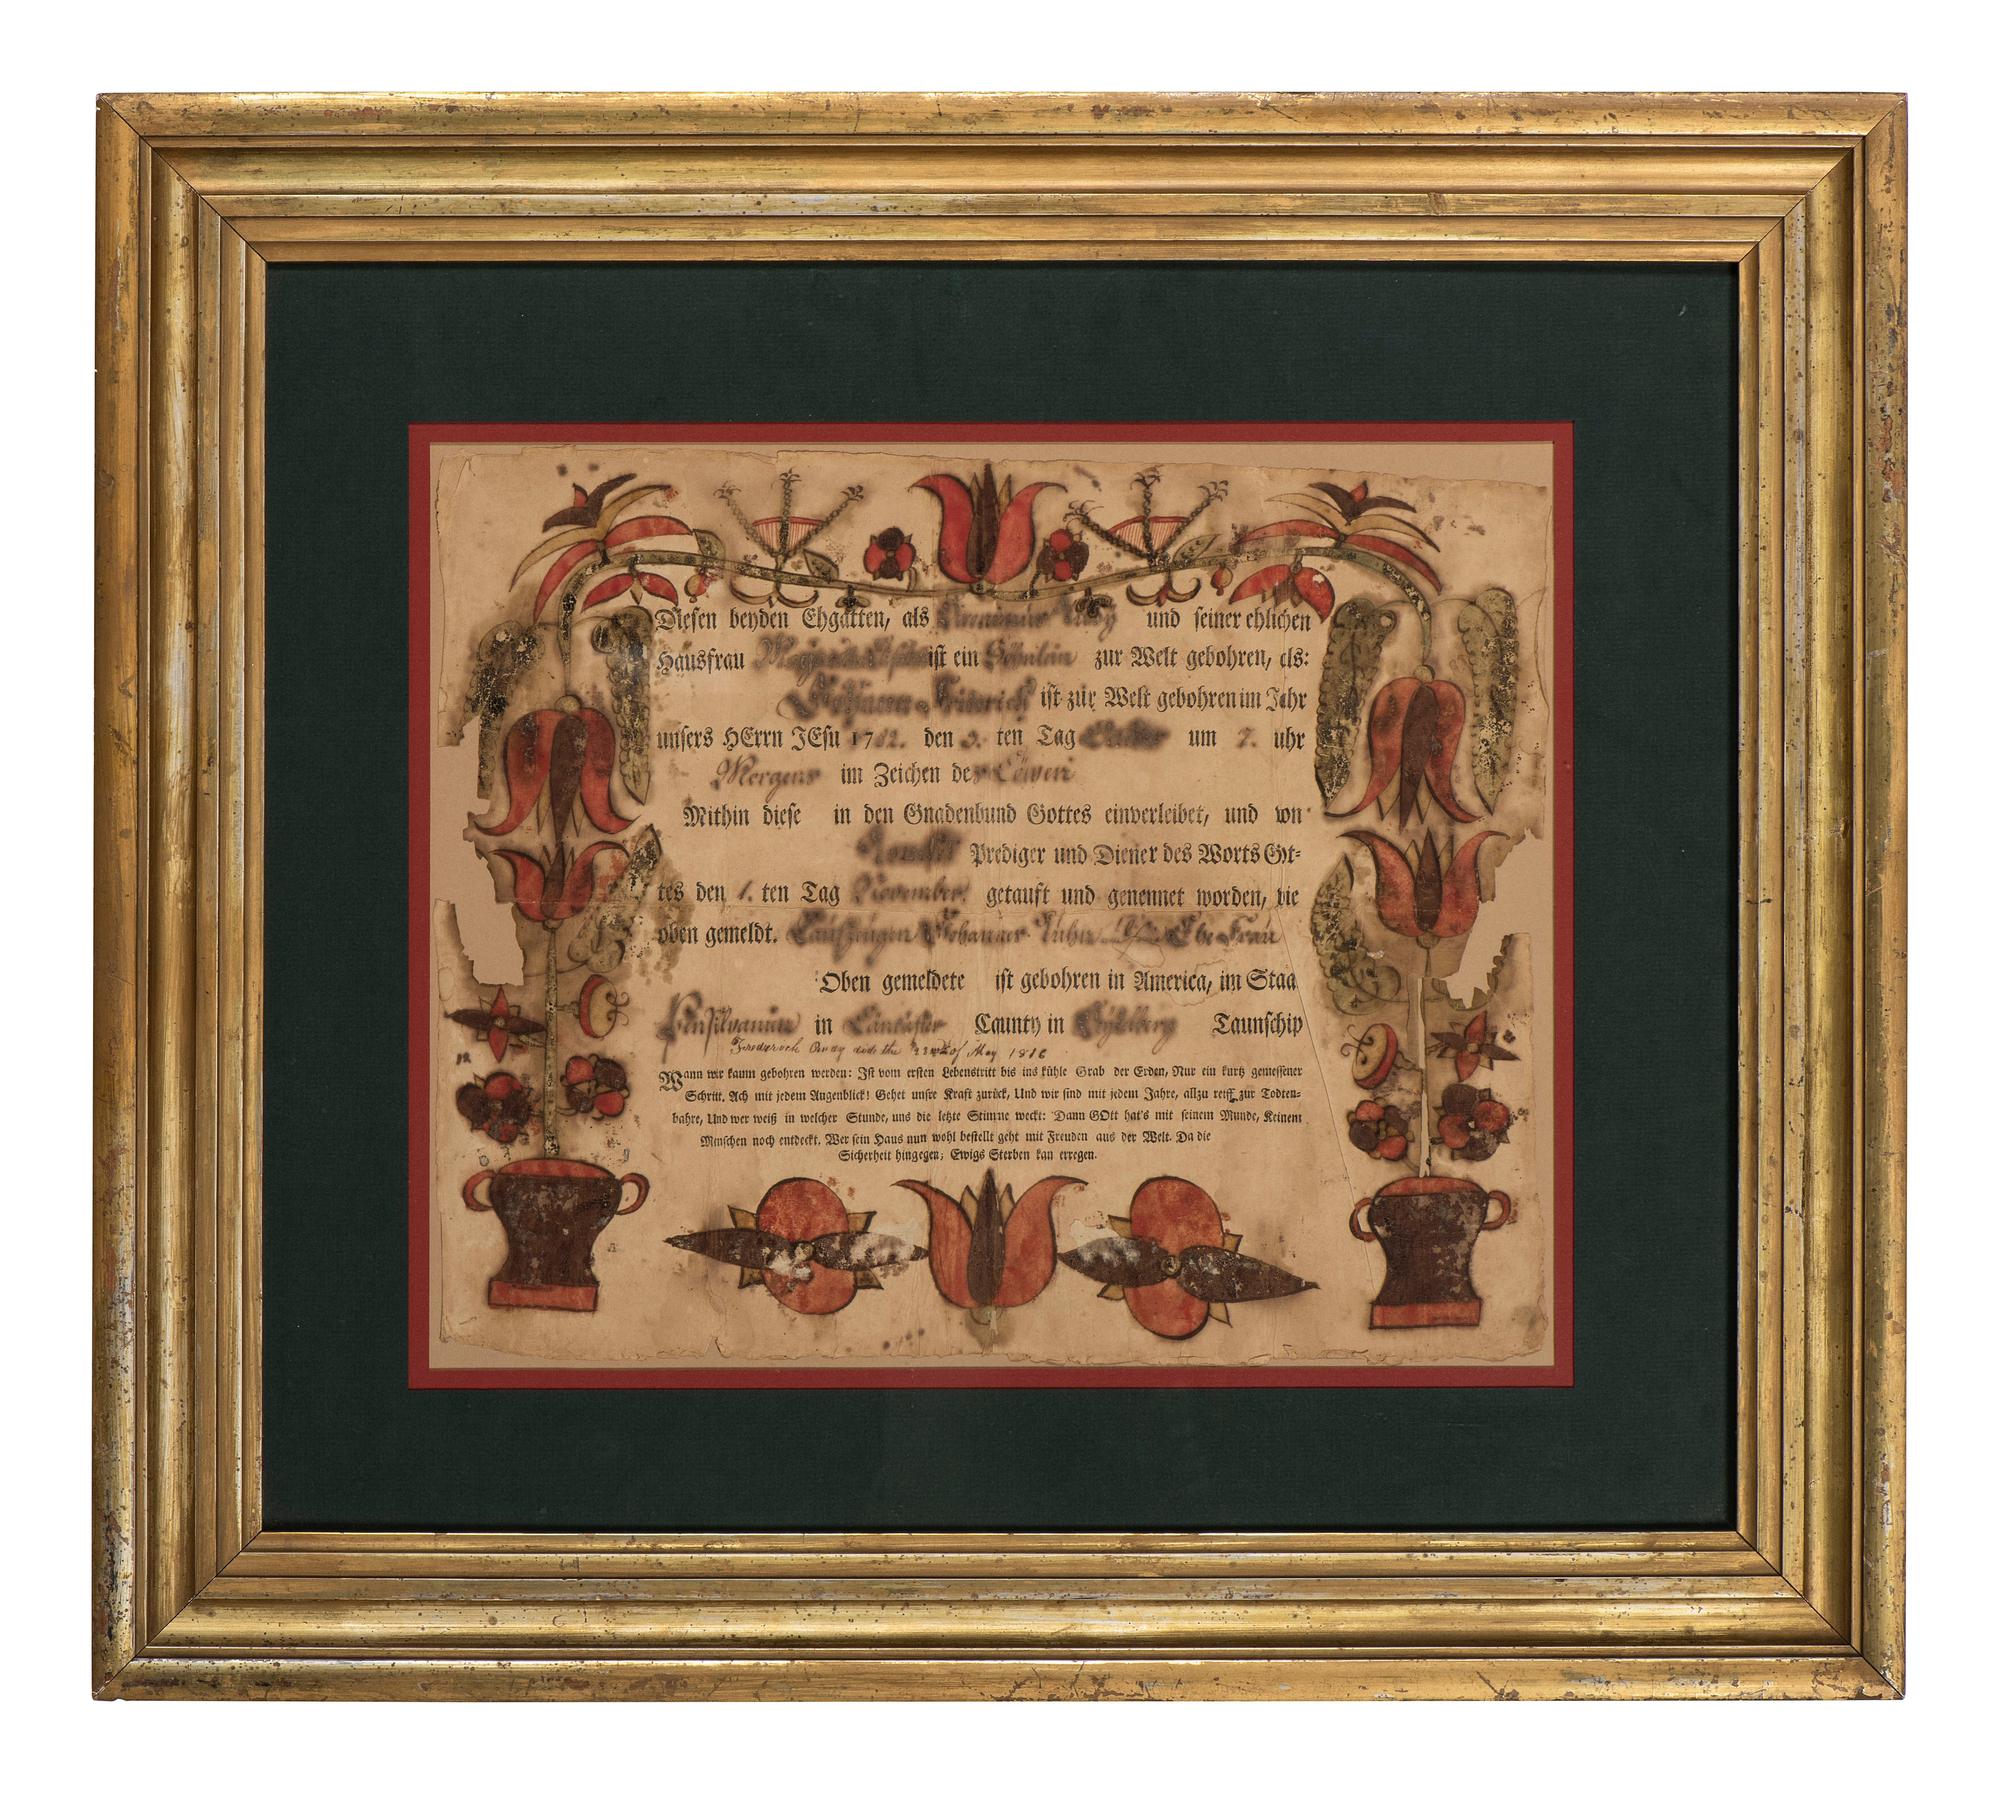 Diesen beyden Ehgatten, als und seiner ehlichen
Hausfrau ist ein zur Welt gebohren, als:
Johann Friderich ist zur Welt gebohren im Jahr
unsers HErrn JEsu 1782. den ten Tag um 7. uhr
Morgens im Zeichen des Löwen
Mithin diese in den Gnadenbund Gottes einverleibet, und von
Prediger und Diener des Worts Got-
tes den 1. ten Tag November. getauft und genennet worden, wie
oben gemeldt. Taufzeugen Johannes Ehe Frau
Oben gemeldete ist gebohren in America, im Staa
Pensilvanien in Lancaster Caunty in Taunschip
died the of May
Wann wir kaum gebohren werden: Ist vom ersten Lebenstritt bis ins kühle Grab der Erden, Nur ein kurtz gemessener
Schritt. Ach mit jedem Augenblick! Gehet unsre Kraft zurück, Und wir sind mit jedem Jahre, allzu reiff zur Todten-
bahre, Und wer weiß in welcher Stunde, uns die letzte Stimme weckt: Dann GOtt hat's mit seinem Munde, Keinem
Menschen noch entdeckt. Wer sein Haus nun wohl bestellt geht mit Freuden aus der Welt. Da die
Sicherheit hingegen; Ewigs Sterben kan erregen.